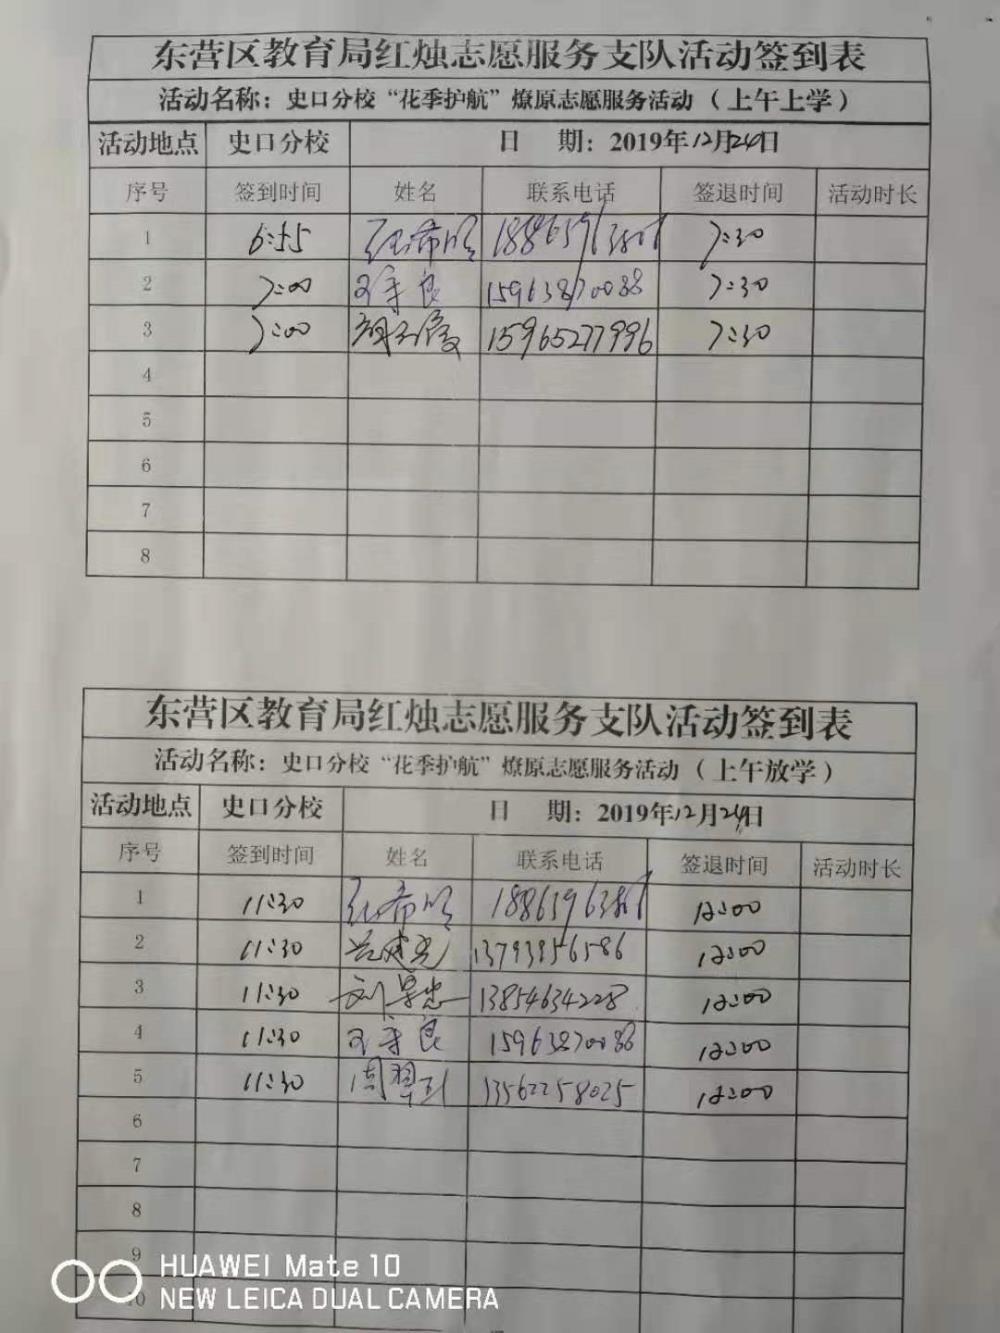 东营区教育局红烛志愿服务支队活动签到表
活动名称：史口分校“花季护航”燎原志愿服务活动（上午上学）
活动地点 史口分校 日 期：2019年12月24日
序号 签到时间 姓名 联系电话 签退时间 活动时长
1 6:55 7:30
2 7:00 15963870088 7:30
3 7:00 15965277996 7:30
4
5
6
7
8
东营区教育局红烛志愿服务支队活动签到表
活动名称：史口分校“花季护航”燎原志愿服务活动（上午放学）
活动地点 史口分校 日 期：2019年12月24日
序号 签到时间 姓名 联系电话 签退时间 活动时长
1 11:30 12:00
2 11:30 12:00
3 11:30 刘景忠 13854634228 12:00
4 11:30 15963870088 12:00
5 11:30 13562258025 12:00
6
7
8
9
10
HUAWEI Mate 10
NEW LEICA DUAL CAMERA